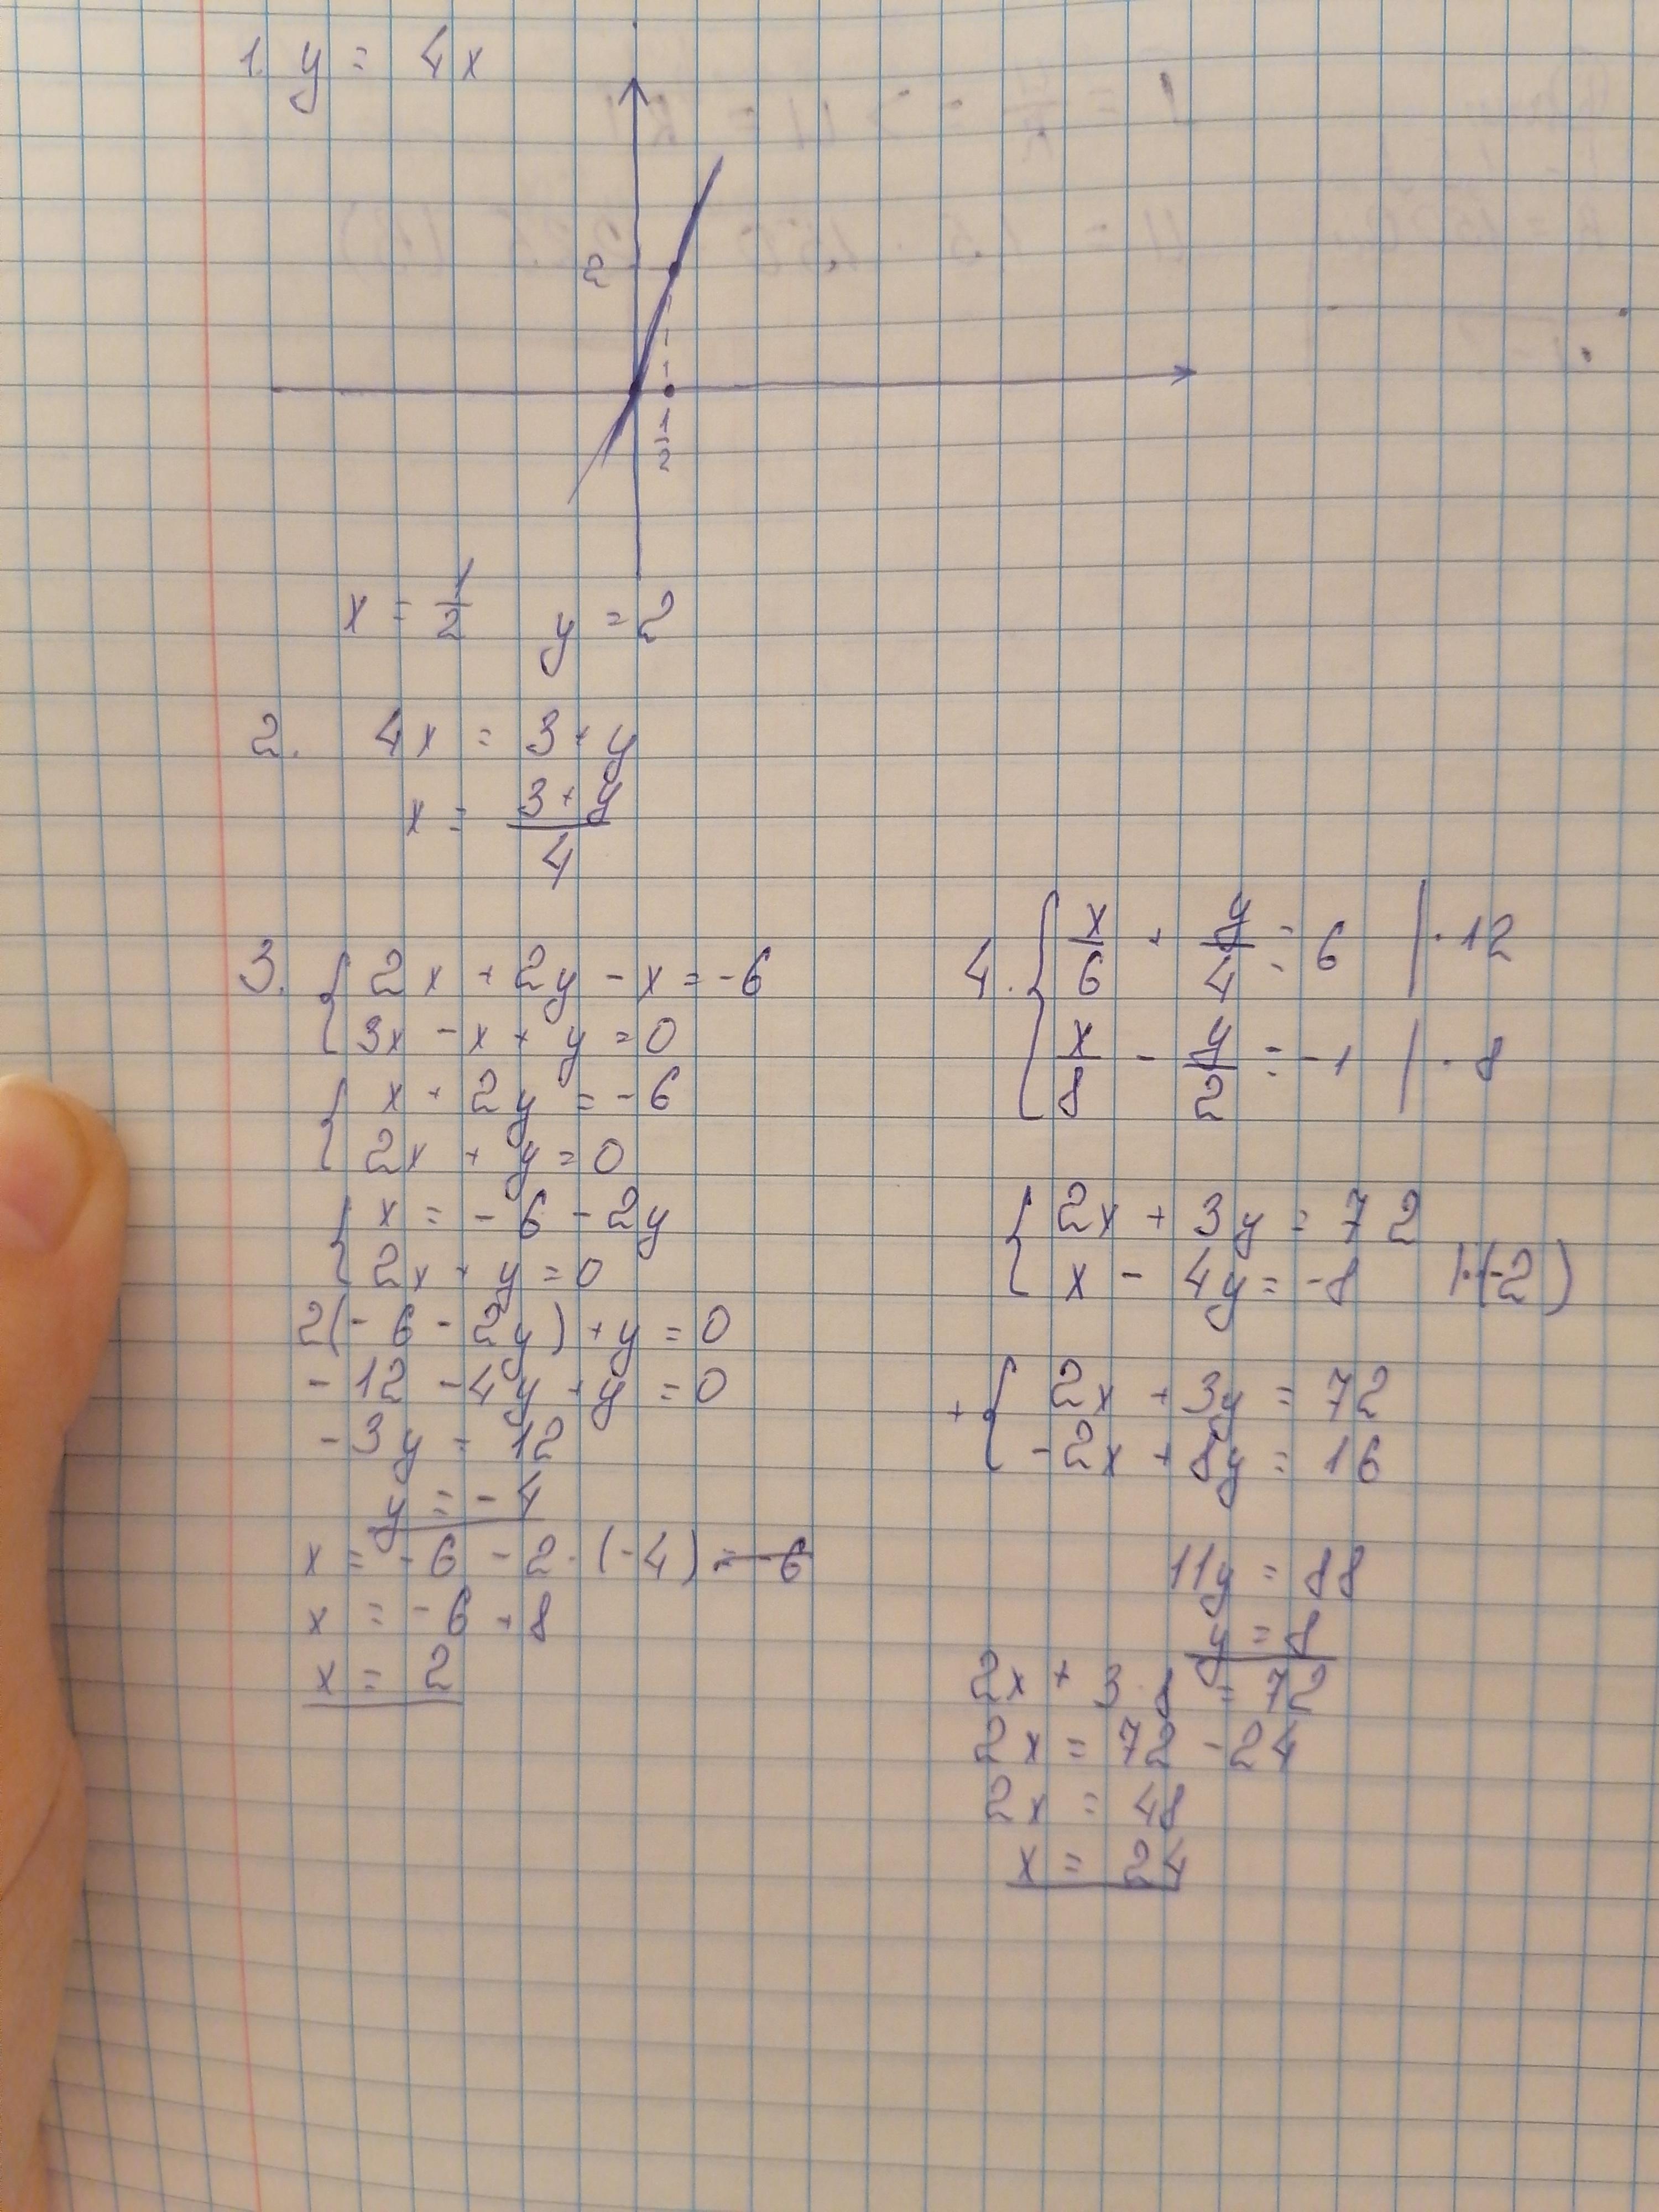 1. y = 4x
2
1/2
x = 1/2 y = 2
2. 4x = 3 + y
x = (3 + y)/4
3. { 2x + 2y - x = -6
3x - x + y = 0
{ x + 2y = -6
2x + y = 0
{ x = -6 - 2y
2x + y = 0
2(-6 - 2y) + y = 0
-12 - 4y + y = 0
-3y = 12
y = -4
x = -6 - 2·(-4) = -6
x = -6 + 8
x = 2
4. { x/6 + y/4 = 6 | · 12
x/8 - y/2 = -1 | · 8
{ 2x + 3y = 72
x - 4y = -8 |·(-2)
+ { 2x + 3y = 72
-2x + 8y = 16
11y = 88
y = 8
2x + 3·8 = 72
2x = 72 - 24
2x = 48
x = 24